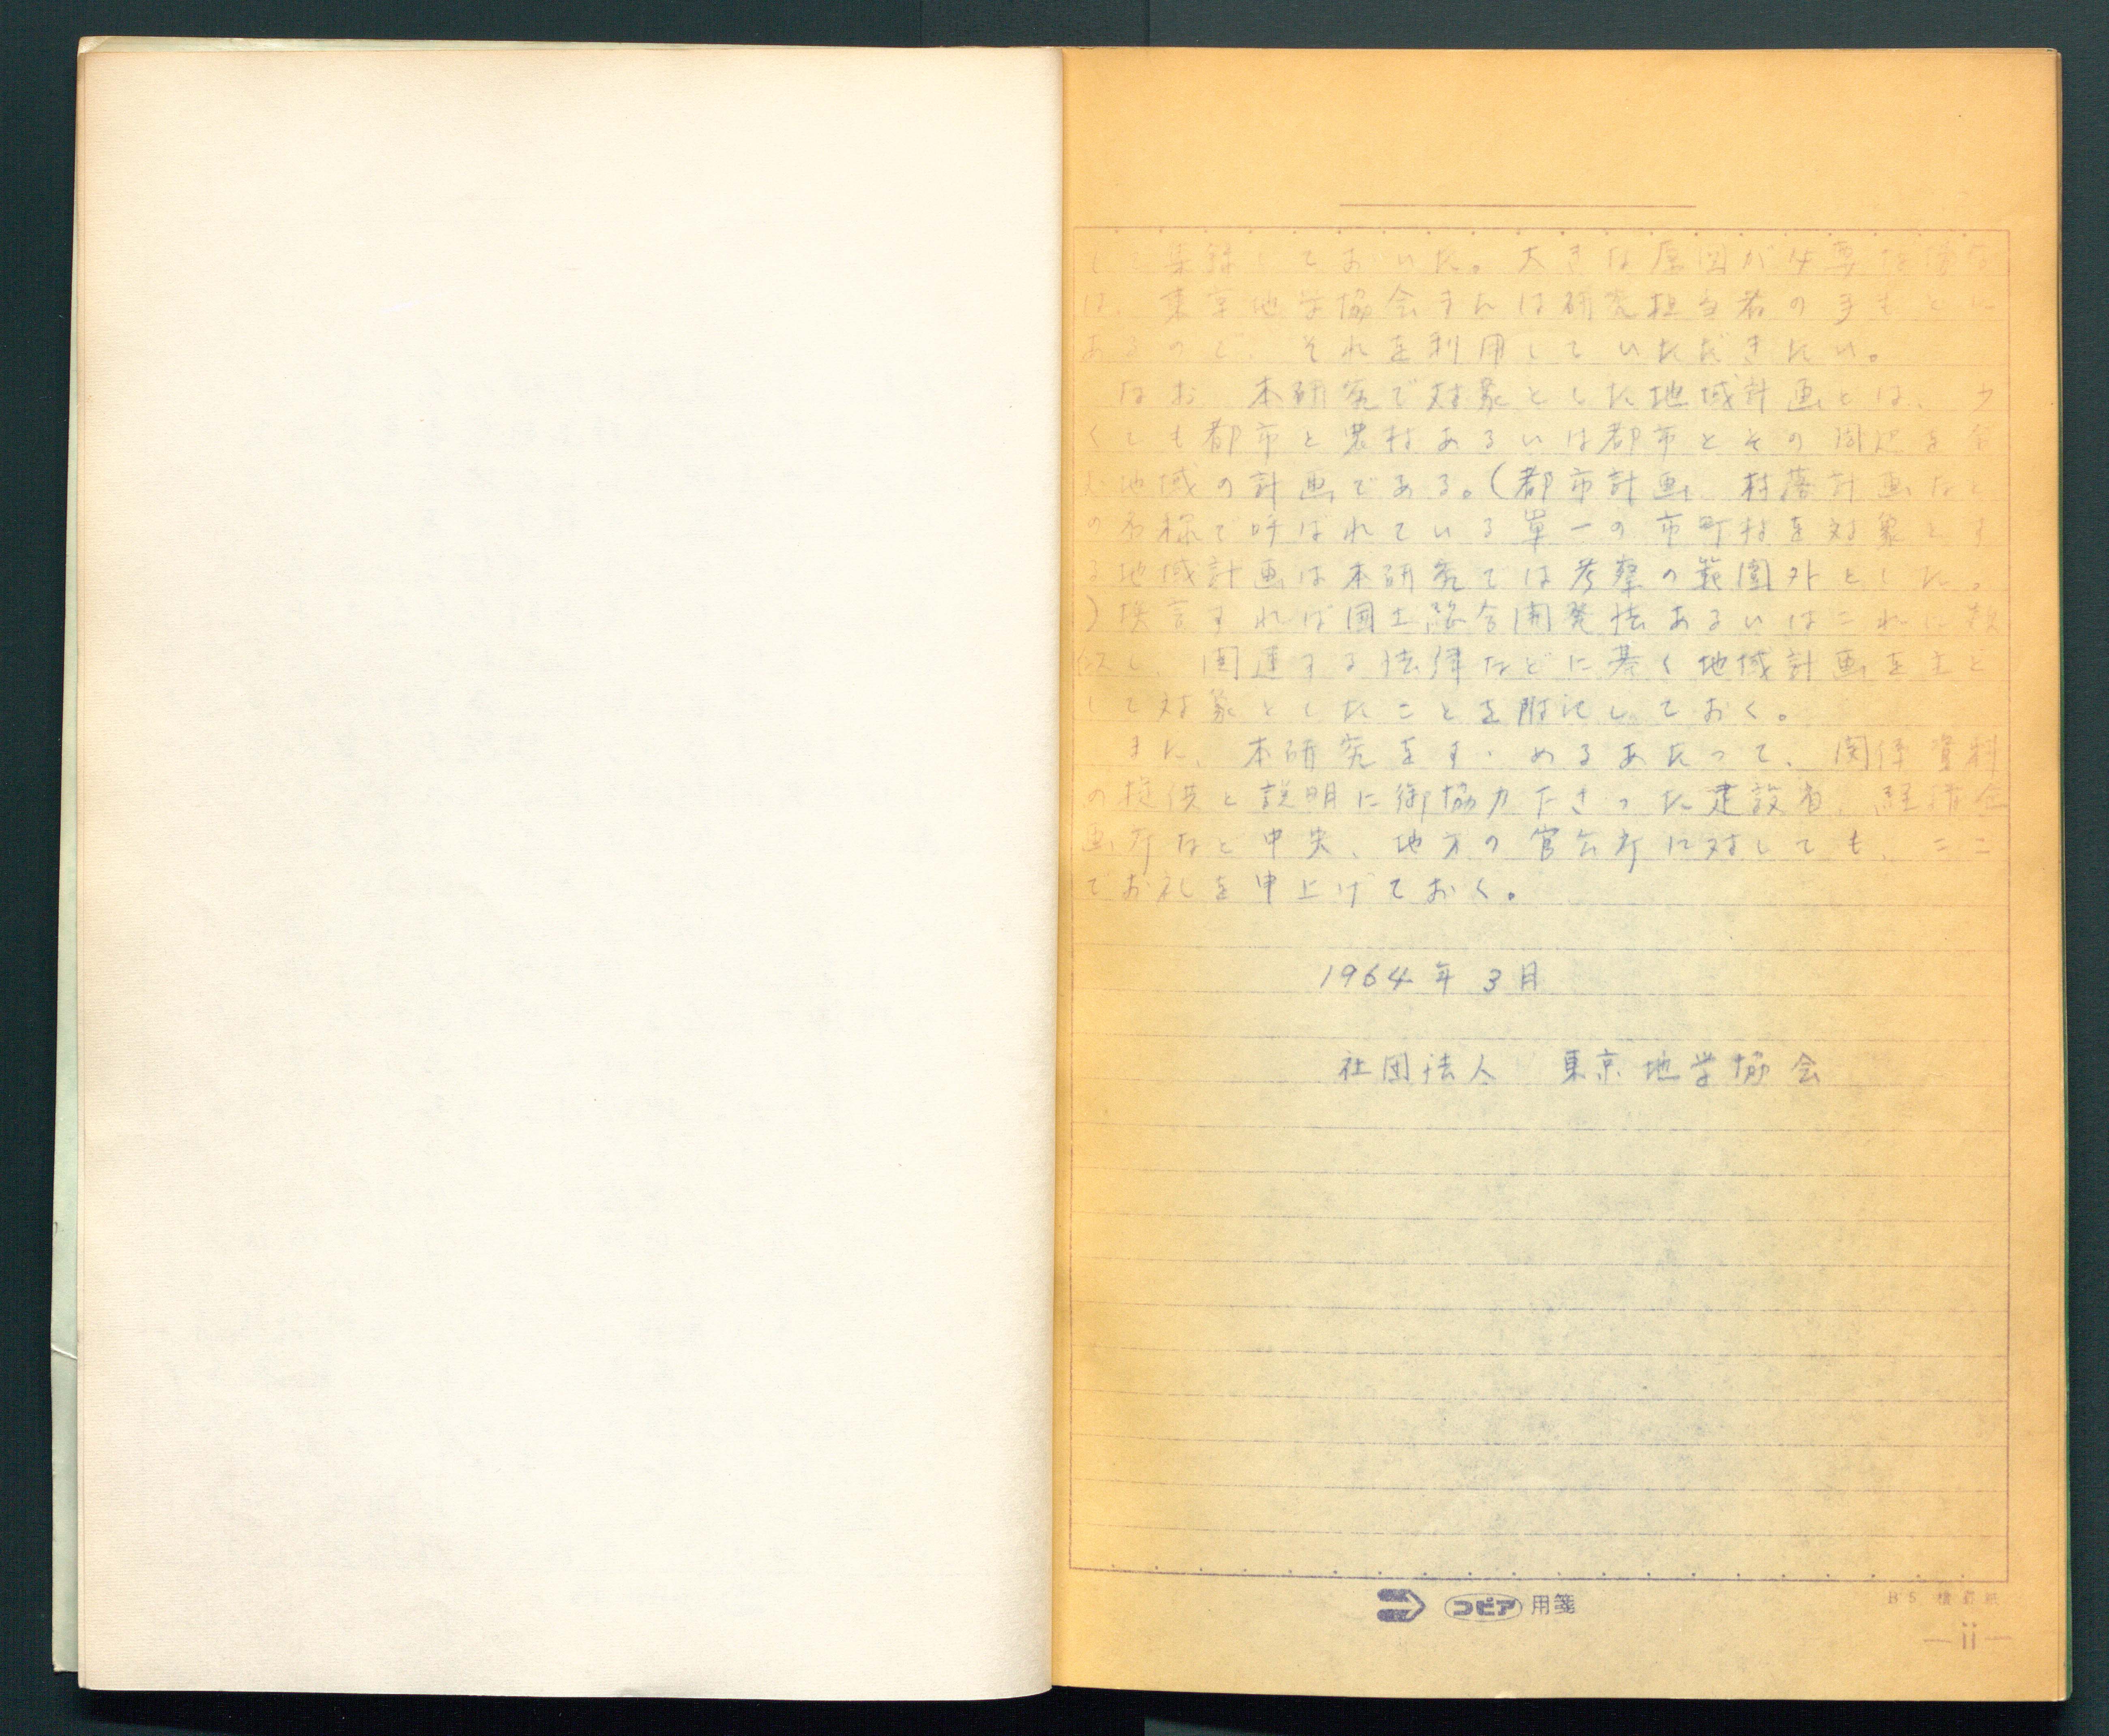 して集録しておいた。大きな原図が必要な場合
は、東京地学協会または研究担当者の手もとに
あるので、それを利用していただきたい。
なお、本研究で対象とした地域計画とは、少
くしも都市と農村あるいは都市とその周辺を含
む地域の計画である。(都市計画、村落計画など
の名称で呼ばれている単一の市町村を対象とす
る地域計画は本研究では考察の範囲外とした。
)換言すれば国土総合開発法あるいはこれに類
似し、関連する法律などに基く地域計画を主と
して対象としたことを附記しておく。
また、本研究をすゝめるあたって、関係資料
の提供と説明に御協力下さった建設省、経済企
画庁など中央、地方の官公庁に対しても、ここ
でお礼を申上げておく。
1964年3月
社団法人 東京地学協会
コピア 用箋
B5
—ii—